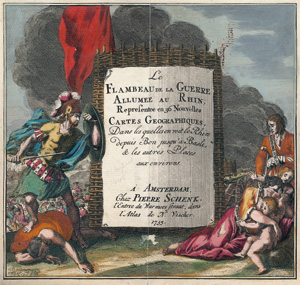 Le
FLAMBEAU DE LA GUERRE
ALLUMEE AU RHIN,
Representée en 96 Nouvelles
CARTES GEOGRAPHIQUES,
Dans lesquelles on voit le Rhin
depuis Bon jusqu'à Basle,
& les autres Places
aux environs.
A AMSTERDAM,
Chez PIERRE SCHENK,
dans
l'Atlas de N. Visscher
1735.